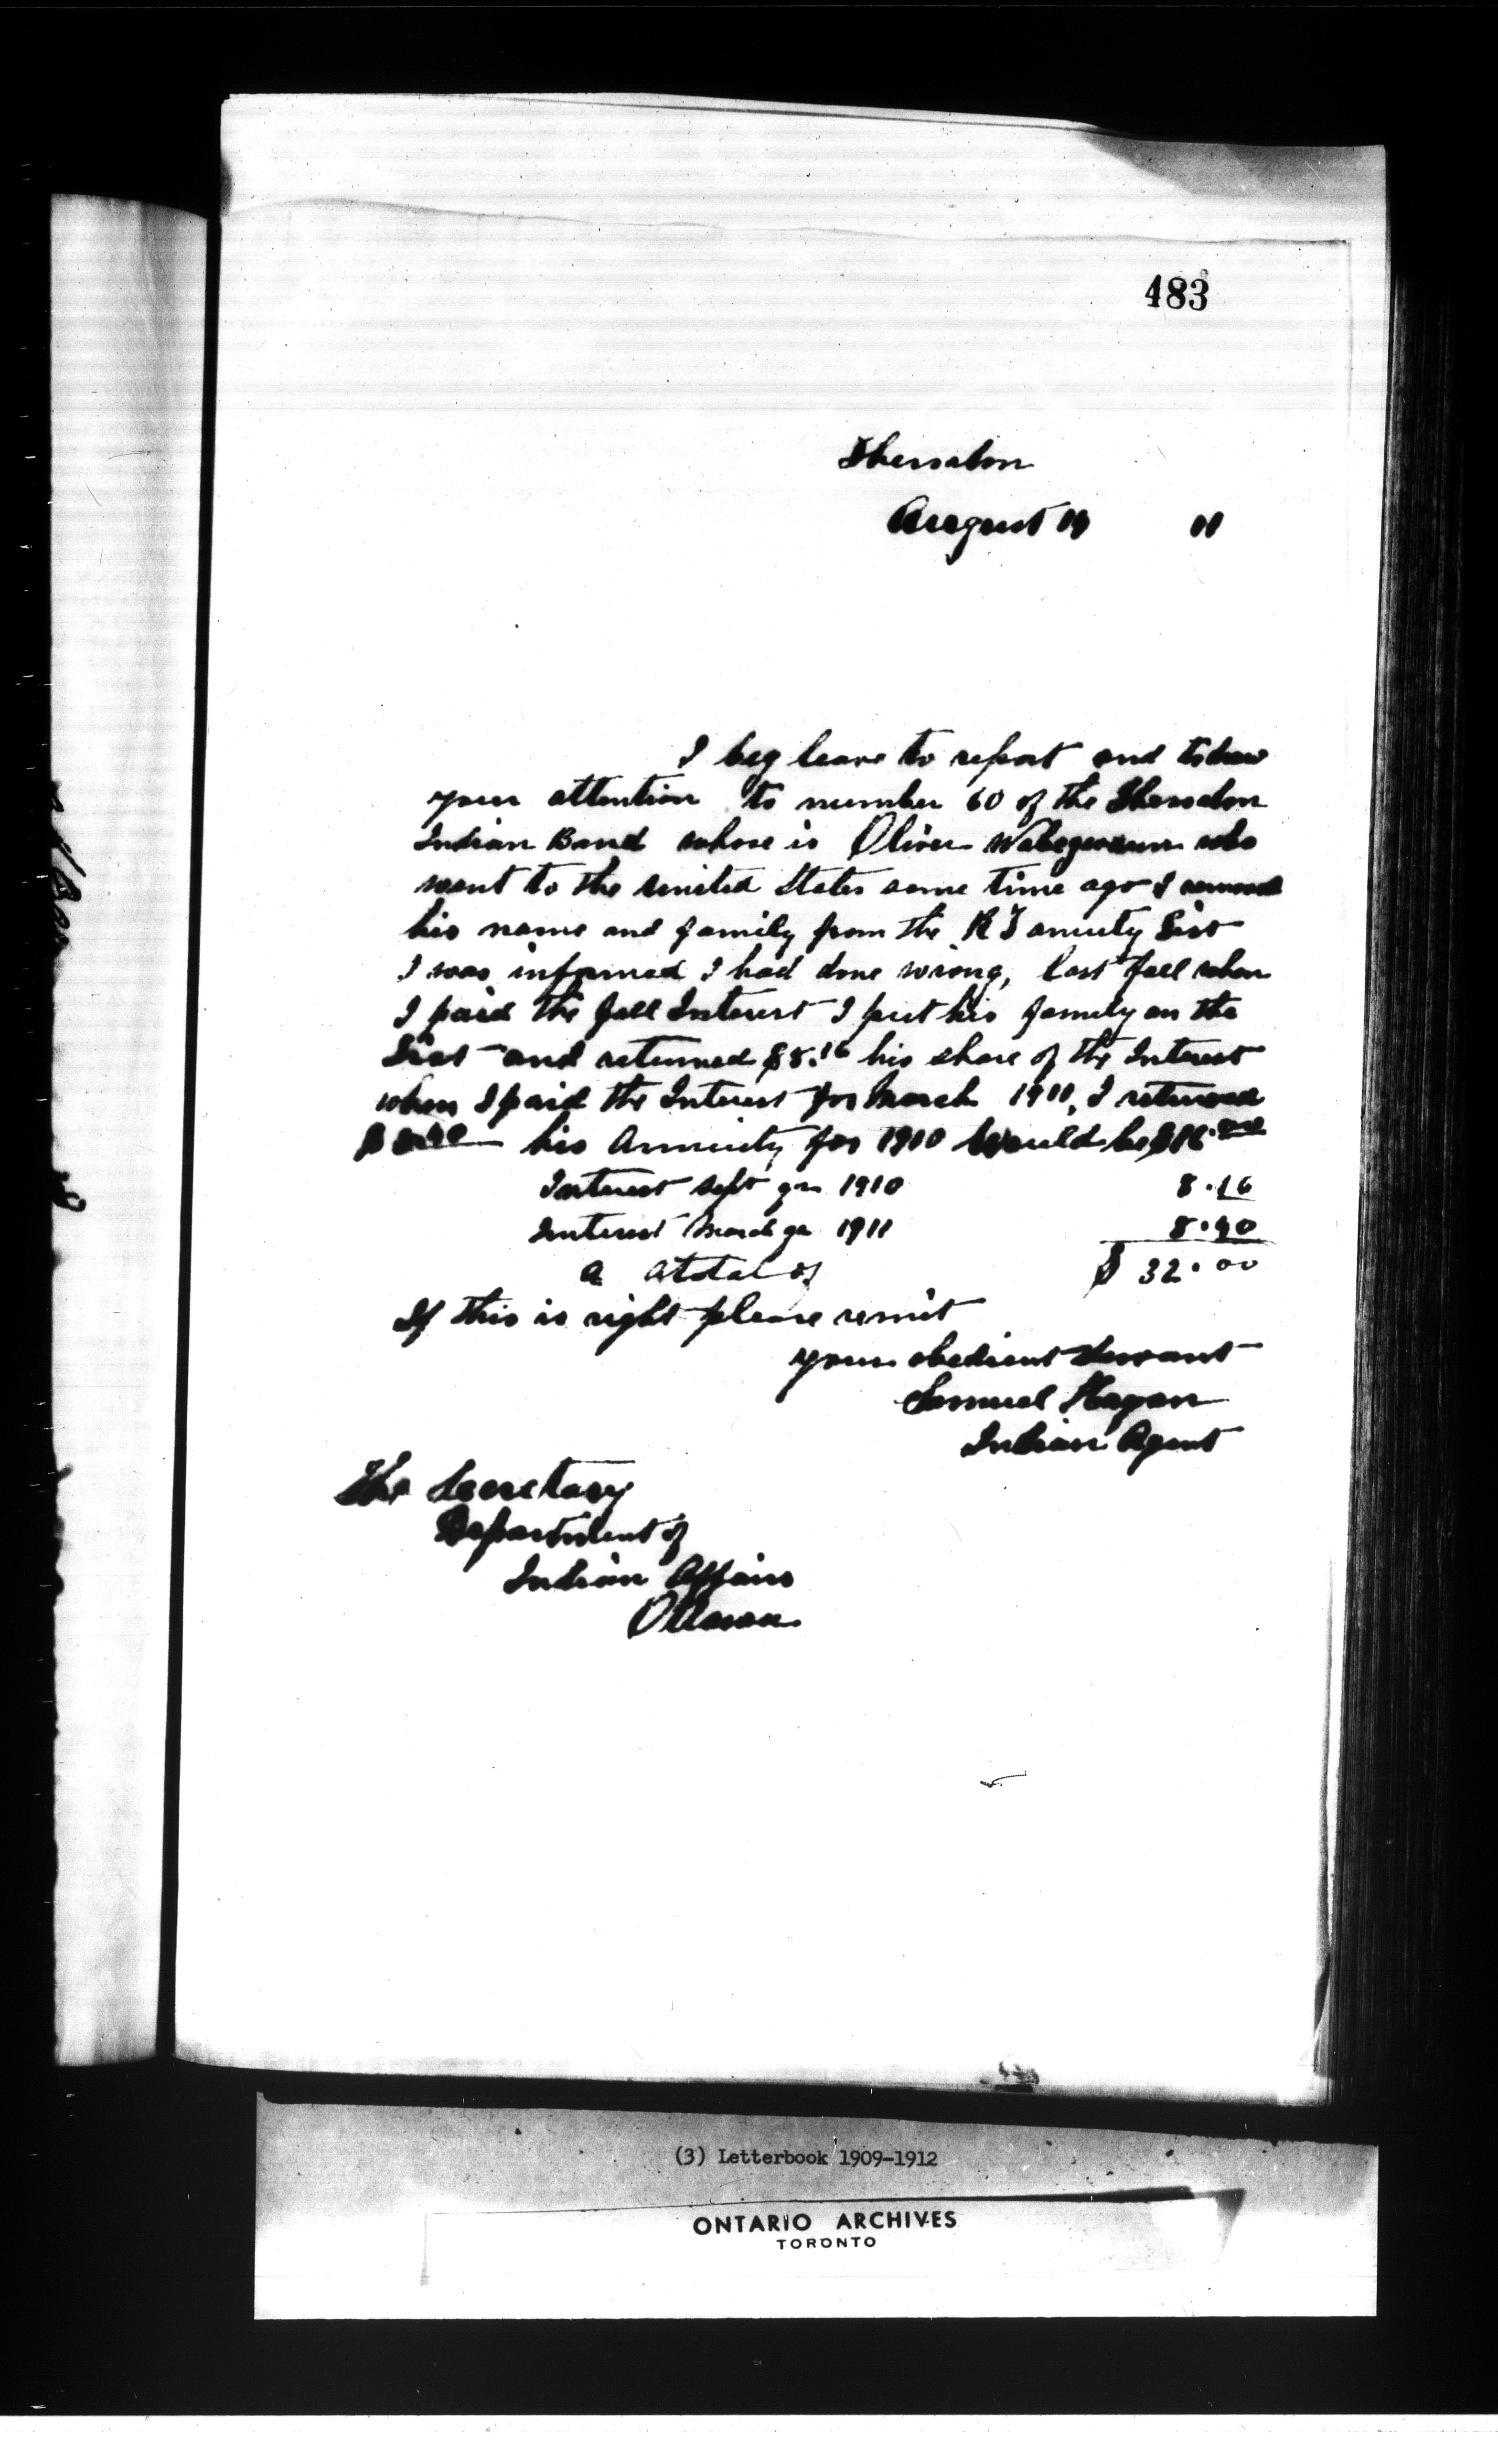 483
Thessalon
August 19 11
I beg leave to report and to draw
your attention to number 60 of the Thessalon
Indian Band whose is Oliver who
went to the United States some time ago I removed
his name and family from the R T anuity List
I was informed I had done wrong, last fall when
I paid the fall Interest I put his family on the
List and returned $8.16 his share of the Interest
when I paid the Interest for March 1911, I returned
his Annuity for 1910 Would be
Interest Sept qr 1910 8.16
Interest March qr 1911 8.40
a a total of $ 32.00
If this is right please remit
your obedient Servant
Samuel Hagan
Indian Agent
The Secretary
Department of
Indian Affairs
Ottawa
(3) Letterbook 1909-1912
ONTARIO ARCHIVES
TORONTO